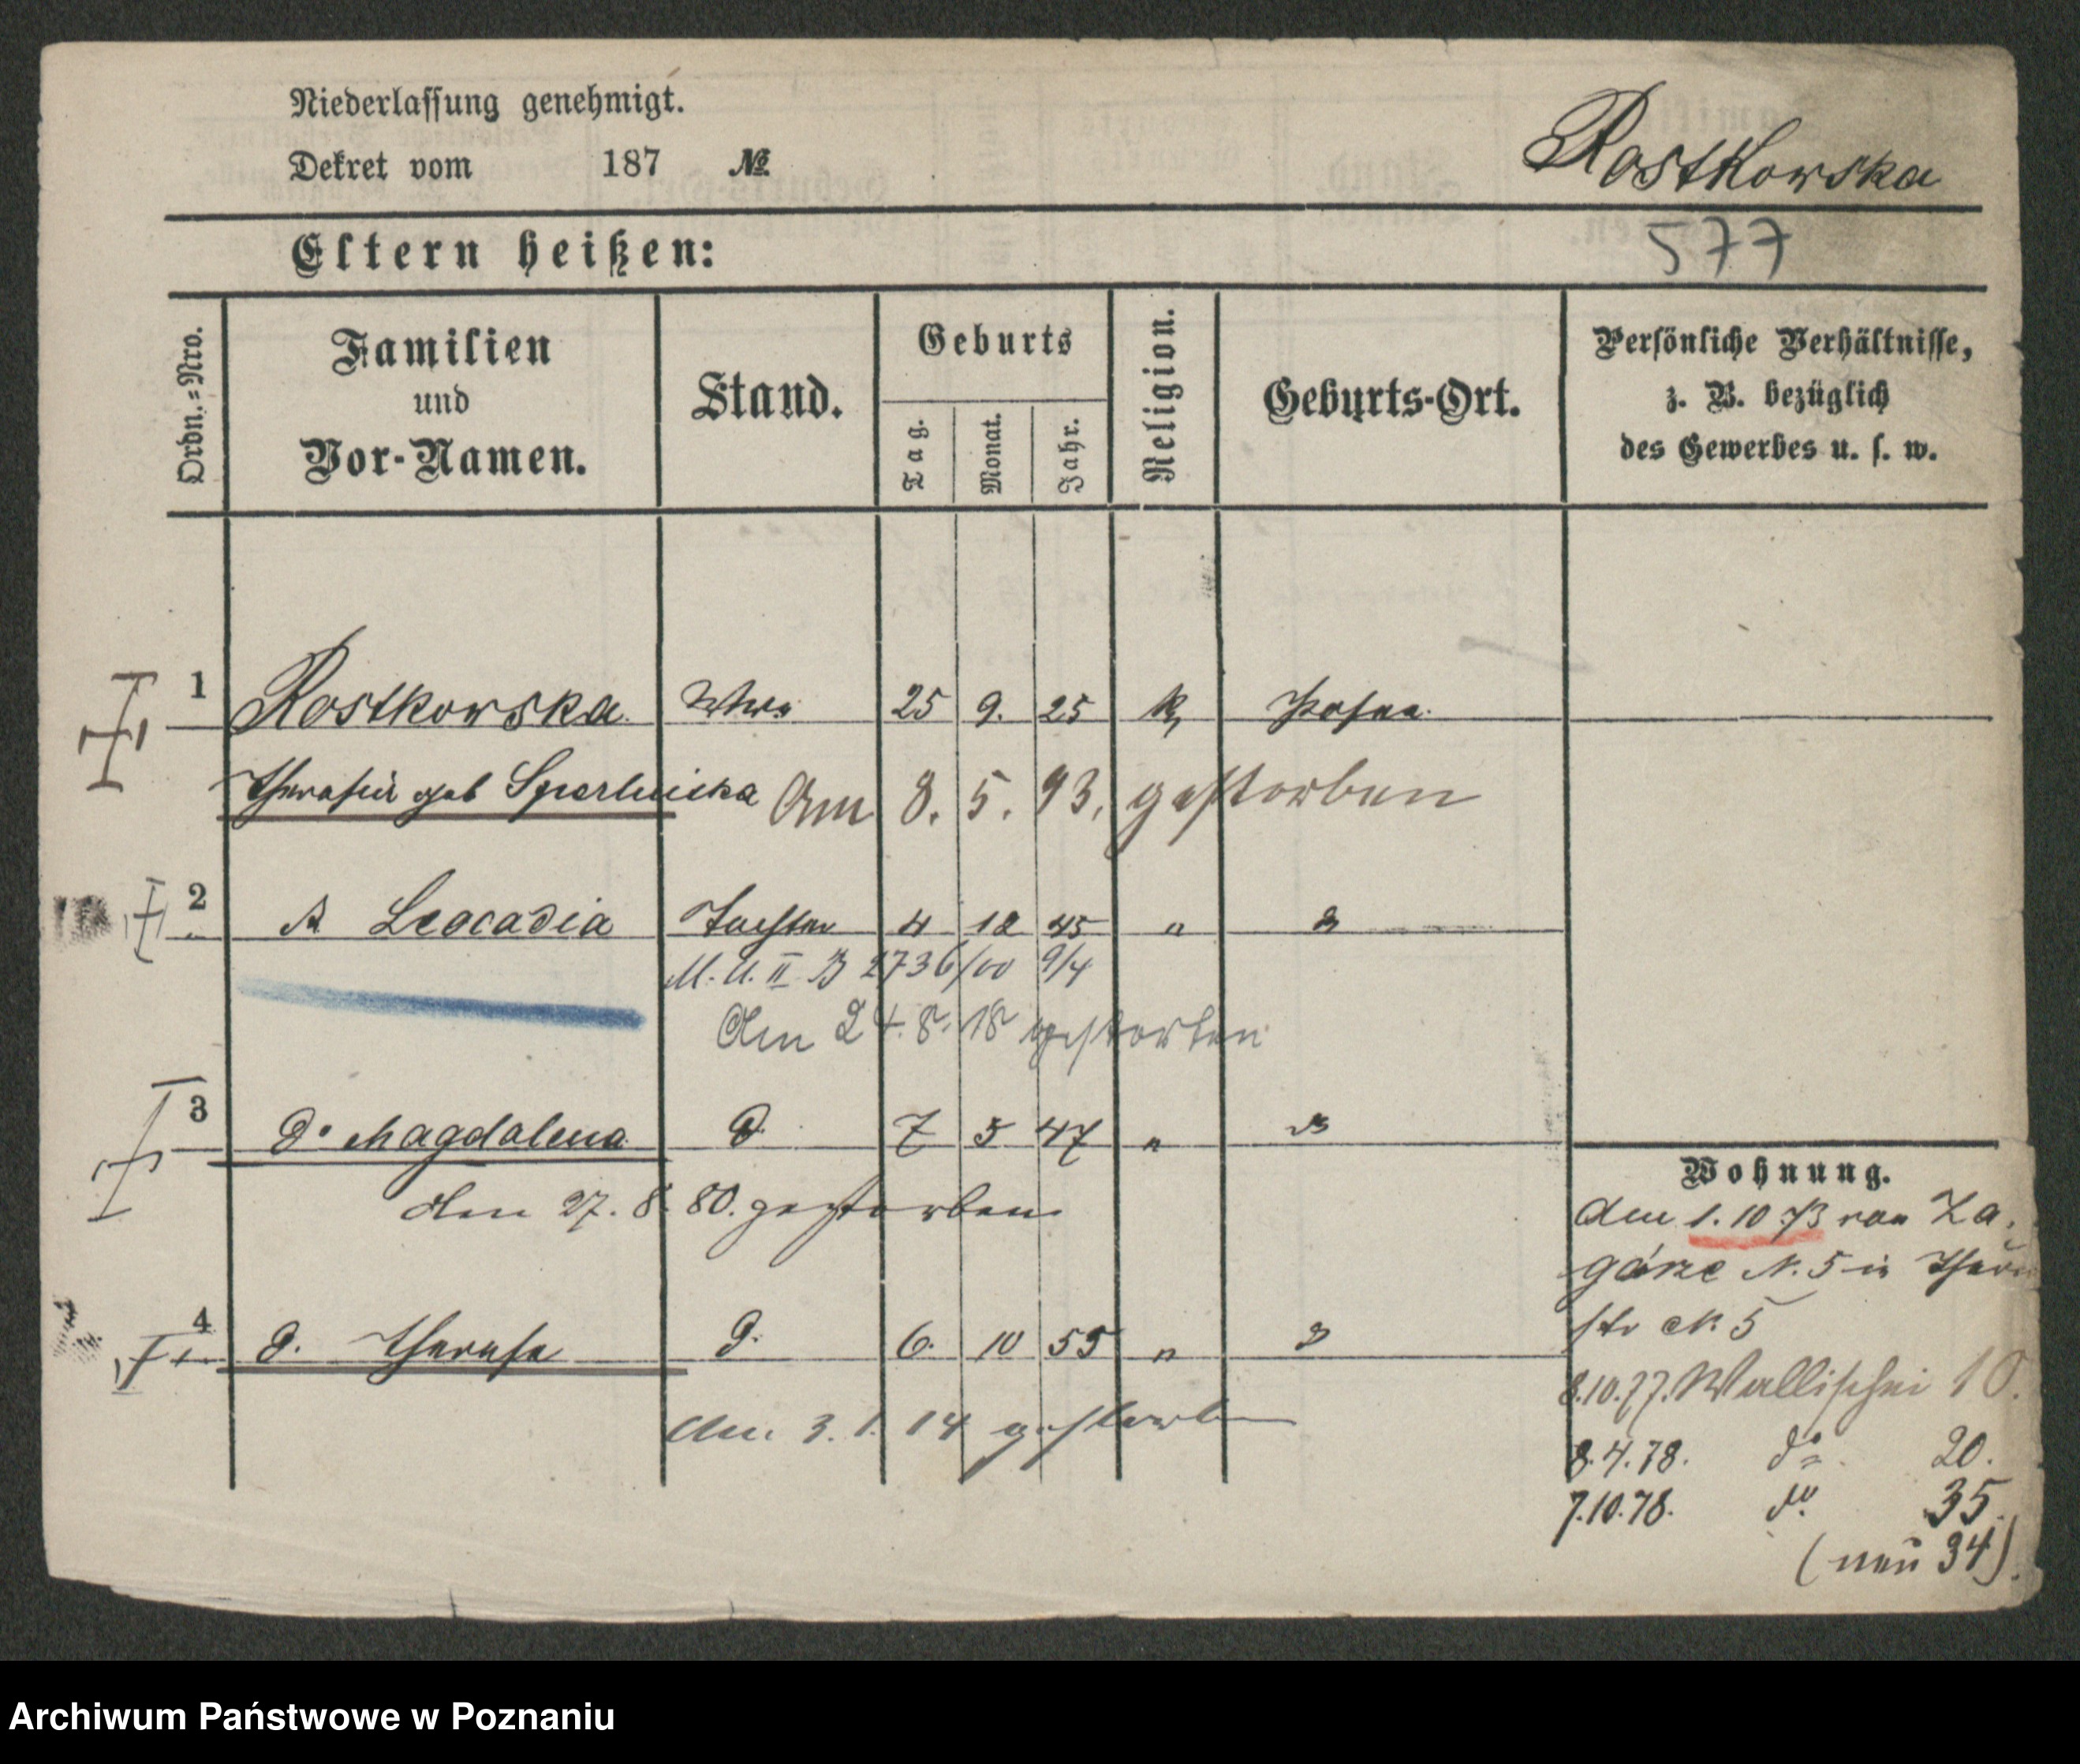 Niederlassung genehmigt.
Dekret vom 187 №
Rostkowska
577
Eltern heißen:
Ordn.-Nro.
Familien
und
Vor-Namen.
Stand.
Geburts
Tag.
Monat.
Jahr.
Religion.
Geburts-Ort.
Persönliche Verhältnisse,
z. B. bezüglich
des Gewerbes u. s. w.
1 Rostkowska Wwe 25 9. 25 k, Posen
geb Am 8. 5. 93. gestorben
2 Leocadia Tochter 4 12 45 "
M. U. II B 2736/00 9/4
Am 24. 8. 18 gestorben
3 do Magdalena d. 7 5 47 "
Am 27. 8. 80. gestorben
4 d. Theresa d. 6. 10 55 "
Am 3. 1. 14 gestorben
Wohnung.
Am 1. 10 73 von Za,
górze N. 5 in
str N. 5
8.10.77. Wallischei 10.
8.4.78. do 20.
7.10.78. do. 35.
(neu 34).
Archiwum Państwowe w Poznaniu